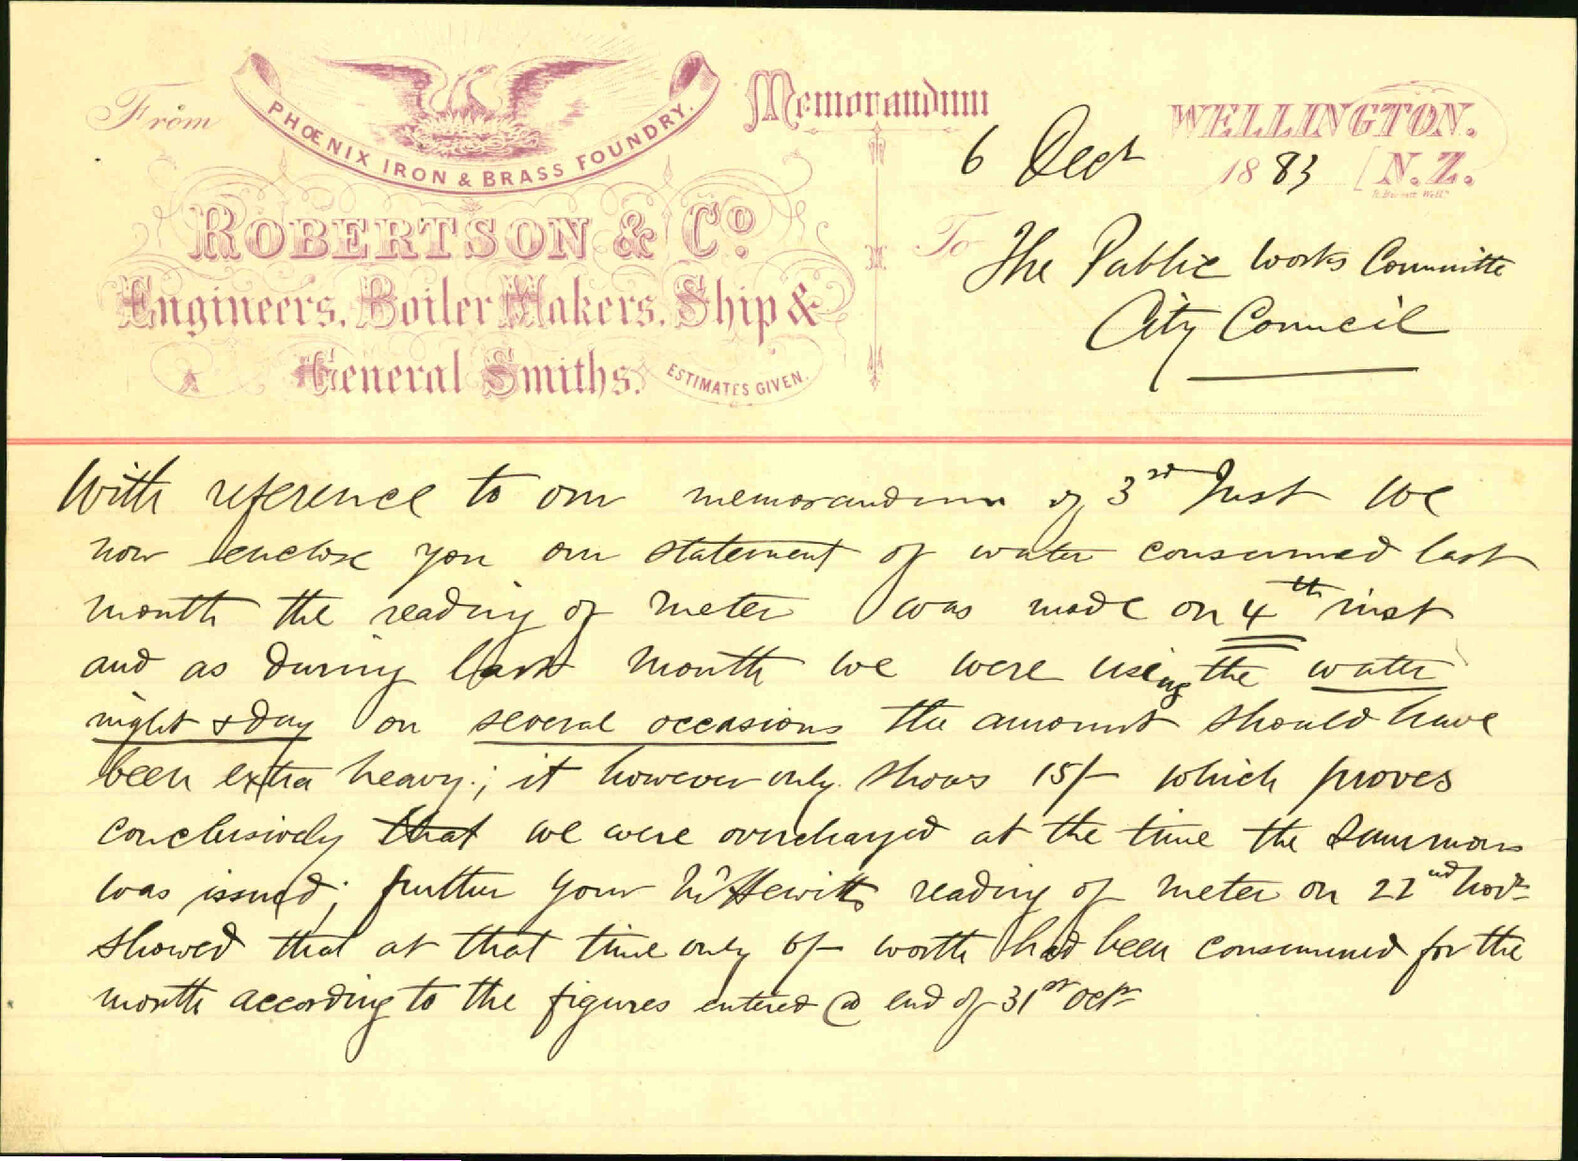 From
PHŒNIX IRON & BRASS FOUNDRY.
ROBERTSON & Co.
Engineers, Boiler Makers, Ship &
General Smiths.
ESTIMATES GIVEN.
Memorandum
WELLINGTON.
6 Decr 1883 N.Z.
To The Public Works Committee
City Council
With reference to our memorandum of 3rd Inst we
now enclose you our statement of water consumed last
month the reading of meter was made on 4th inst
and as during last month we were using the water
night & day on several occasions the amount should have
been extra heavy; it however only shows 15/- which proves
conclusively that we were overcharged at the time the summons
was issued; further your Mr Hewitts reading of meter on 22nd Novr
showed that at that time only 6/- worth had been consumed for the
month according to the figures entered @ end of 31st Octr